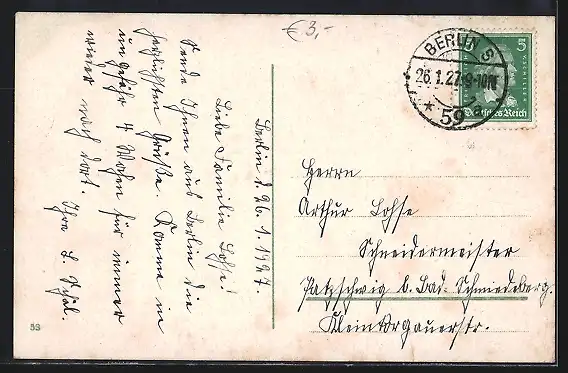 €3,-
Berlin d. 26.1.1927.
Liebe Familie Lohse!
Sende Ihnen aus Berlin die
herzlichsten Grüße. Komme in
ungefähr 4 Wochen für immer
wieder nach dort. Ihre L.
BERLIN S
26.1.27.9-10N
* 59
5
Deutsches Reich
Herrn
Arthur Lohse
Schneidermeister
Patzschwig b. Bad-Schmiedeberg.
Kleinkorgauerstr.
53